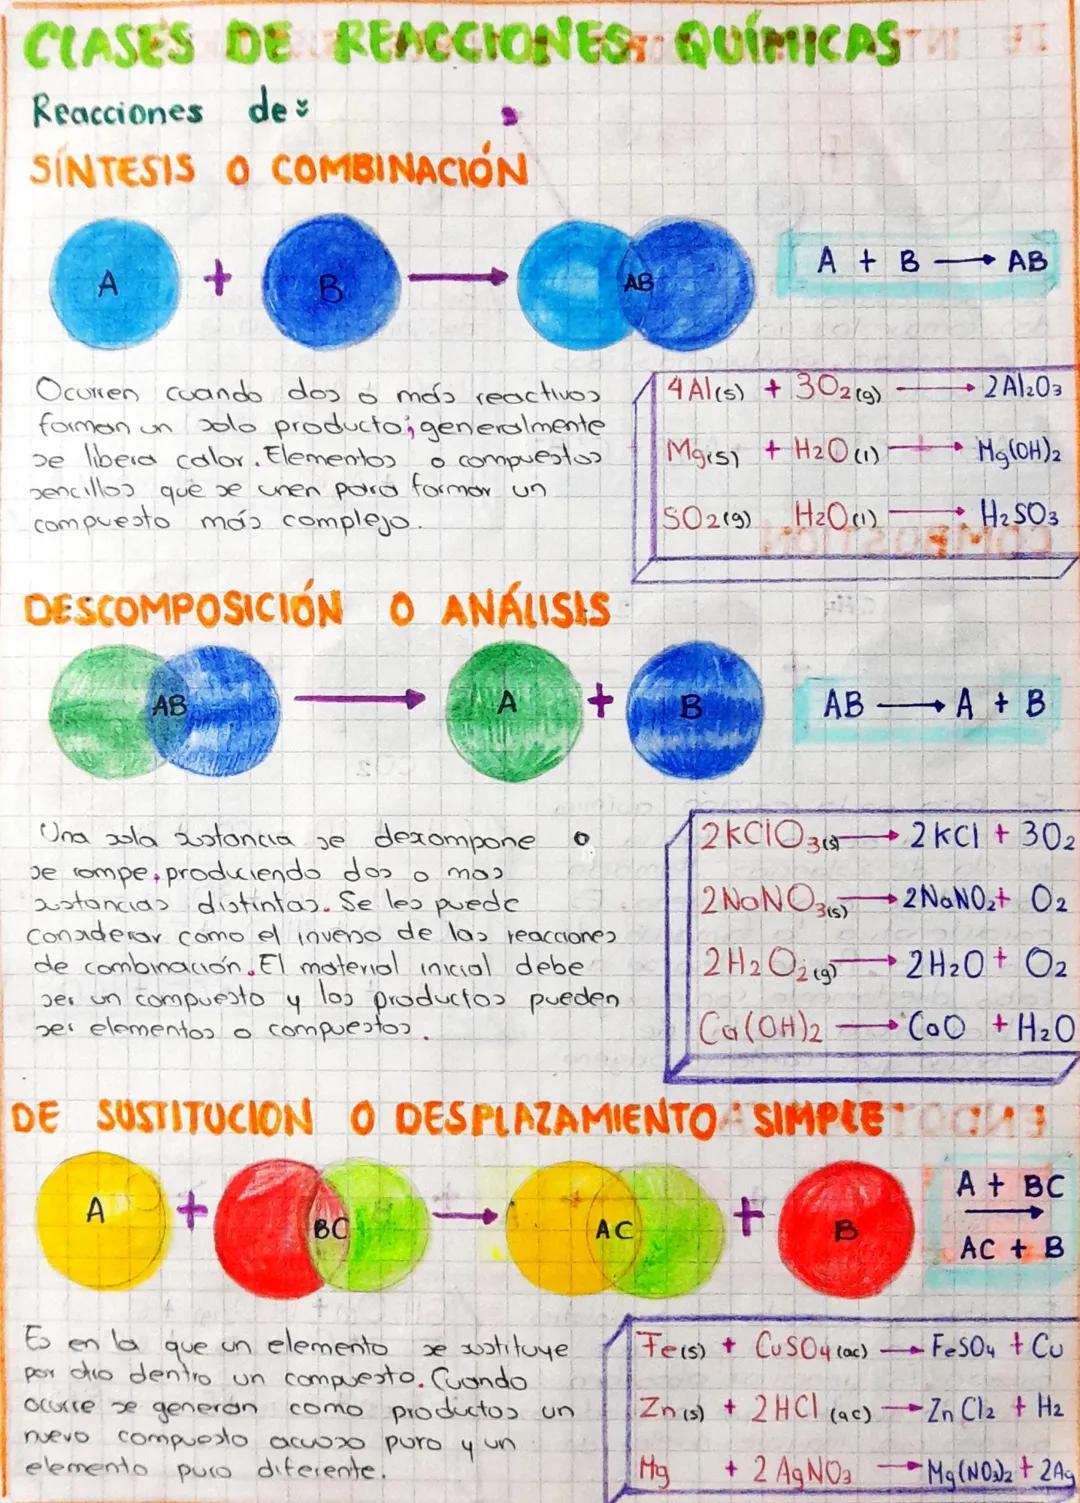 CLASES DE REACCIONES QUÍMICAS
Reacciones de:
SÍNTESIS O COMBINACIÓN
A + B AB
A + B → AB
Ocurren cuando dos o más reactivos
forman un solo producto; generalmente
se libera calor. Elementos o compuestos
sencillos que se unen para formar un
compuesto más complejo.
4Al(s) + 3O2(g) → 2Al2O3
Mg(s) + H2O(l) → Mg(OH)2
SO2(g) H2O(l) → H2SO3
DESCOMPOSICIÓN O ANÁLISIS
AB A + B
AB → A + B
Una sola sustancia se descompone o
se rompe, produciendo dos o mas
sustancias distintas. Se les puede
considerar como el inverso de las reacciones
de combinación. El material inicial debe
ser un compuesto y los productos pueden
ser elementos o compuestos.
2KClO3(s) → 2KCl + 3O2
2NaNO3(s) → 2NaNO2 + O2
2H2O2(g) → 2H2O + O2
Ca(OH)2 → CaO + H2O
DE SUSTITUCION O DESPLAZAMIENTO SIMPLE
A + BC AC + B
A + BC
→
AC + B
Es en la que un elemento se sustituye
por otro dentro un compuesto. Cuando
ocurre se generan como productos un
nuevo compuesto acuoso puro y un
elemento puro diferente.
Fe(s) + CuSO4(ac) → FeSO4 + Cu
Zn(s) + 2HCl (ac) → ZnCl2 + H2
Mg + 2AgNO3 → Mg(NO3)2 + 2Ag